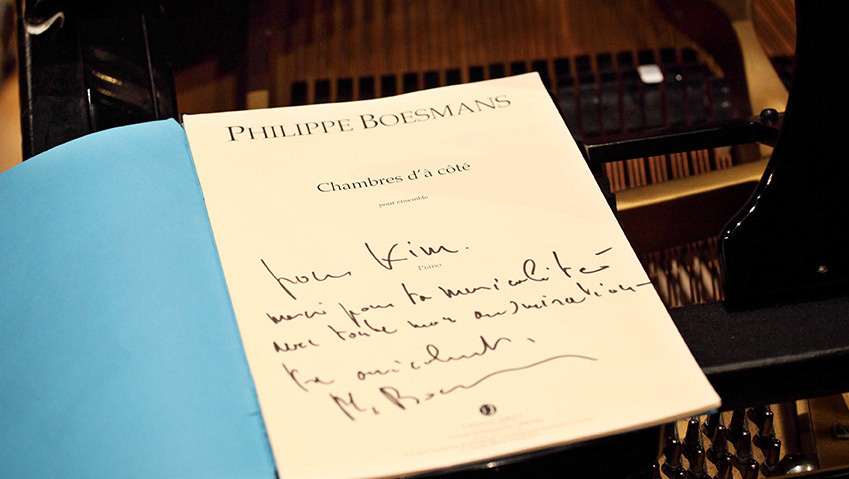 PHILIPPE BOESMANS
Chambres d'à côté
pour ensemble
pour Kim.
Piano
merci pour ta musicalité
avec toute mon admiration
Ph. Boesmans